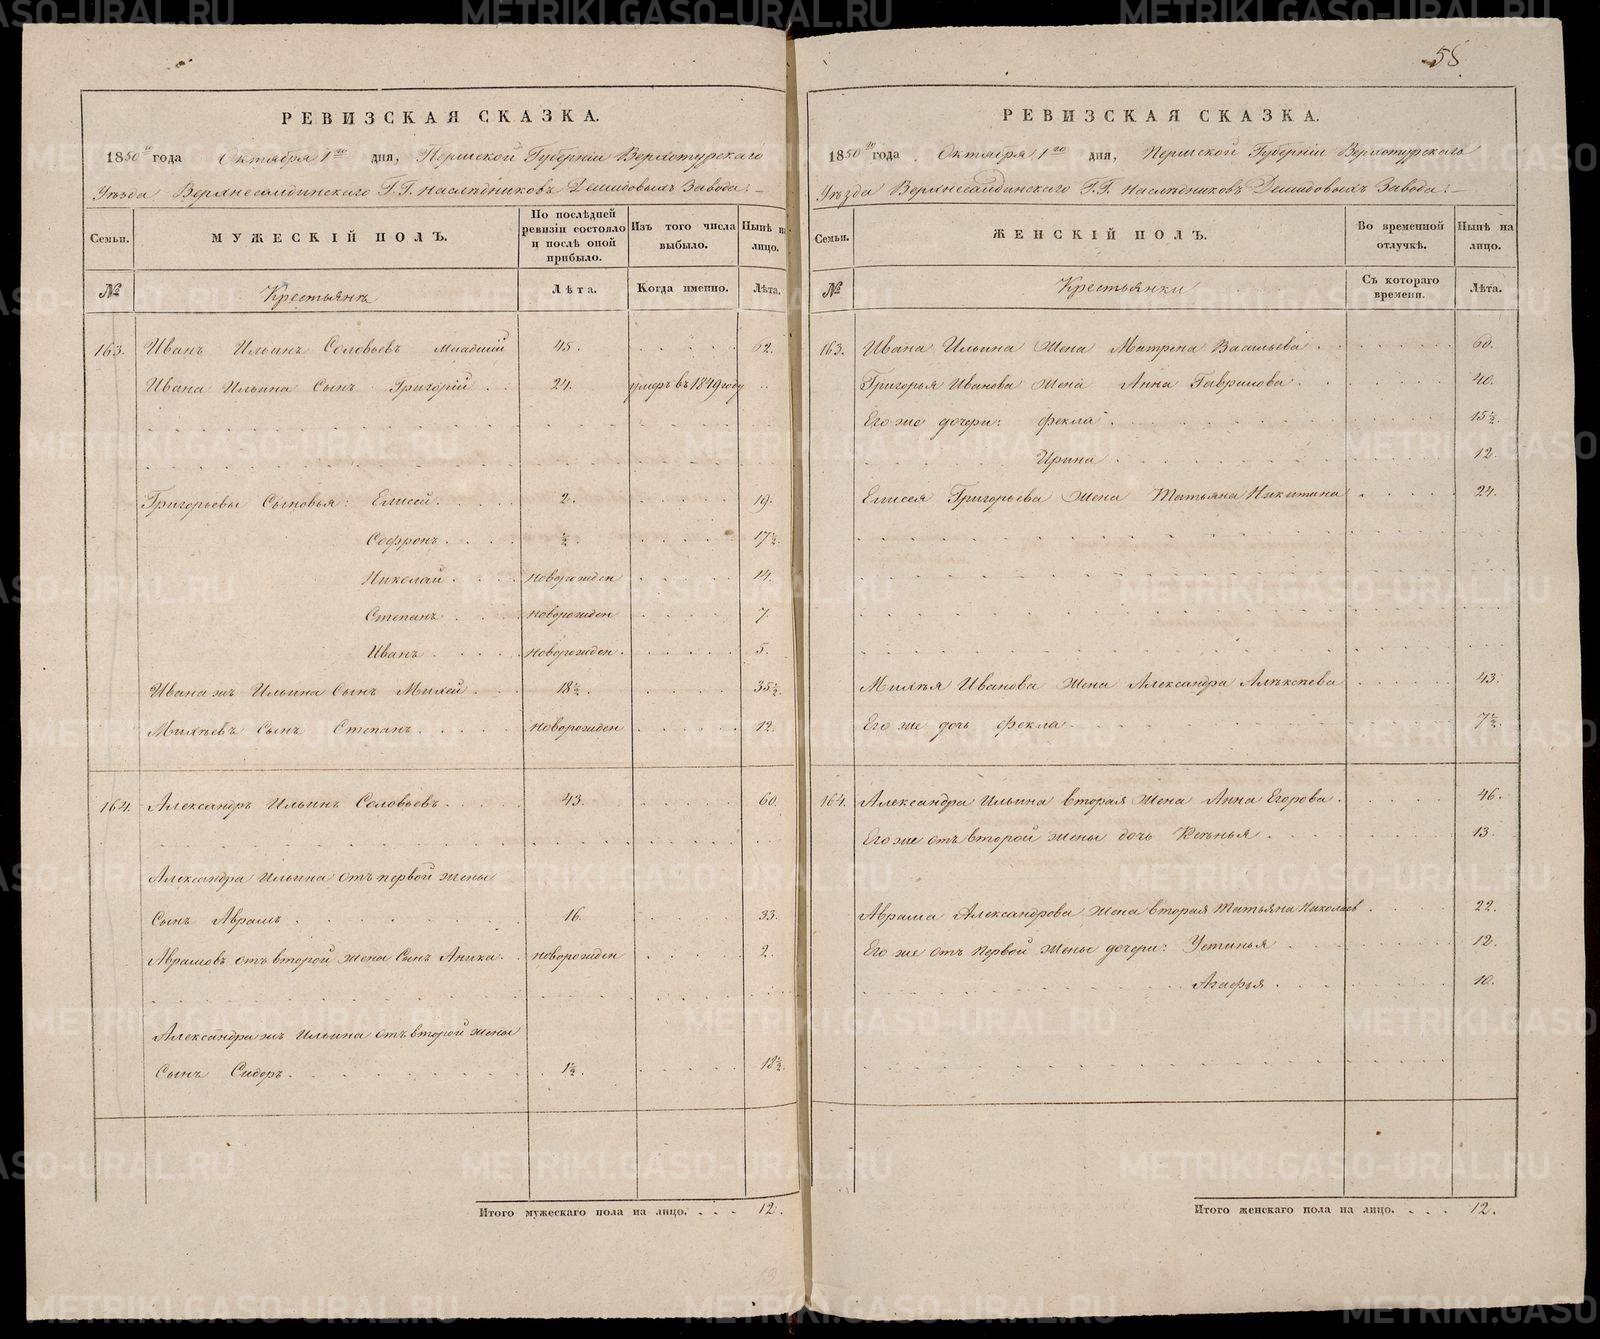 58
РЕВИЗСКАЯ СКАЗКА.
1850го года Октября 1го дня, Пермской Губерніи Верхотурскаго
Уѣзда Верхнесалдинскаго Г.Г. Наслѣдниковъ Демидовыхъ Завода:
Семьи.
МУЖЕСКІЙ ПОЛЪ.
По послѣдней ревизіи состояло и послѣ оной прибыло.
Изъ того числа выбыло.
Нынѣ на лицо.
№
Крестьянъ
Лѣта.
Когда именно.
Лѣта.
163. Иванъ Ильинъ Соловьевъ младшій 45. 62.
Ивана Ильина Сынъ Григорій 24. умеръ въ 1849 году
Григорьевы Сыновья: Елисей 2. 19.
Софронъ ½. 17½.
Николай новорожден 14.
Степанъ новорожден 7.
Иванъ новорожден. 5.
Ивана жъ Ильина Сынъ Михей 18½. 35½.
Михѣевъ Сынъ Степанъ новорожден 12.
164. Александръ Ильинъ Соловьевъ 43. 60.
Александра Ильина отъ первой жены
Сынъ Аврамъ 16. 33.
Аврамовъ отъ второй жены Сынъ Аника новорожден 2.
Александра жъ Ильина отъ второй жены
Сынъ Сидоръ 1½. 18½.
Итого мужескаго пола на лицо. 12.
РЕВИЗСКАЯ СКАЗКА.
1850го года Октября 1го дня, Пермской Губерніи Верхотурскаго
Уѣзда Верхнесалдинскаго Г.Г. Наслѣдниковъ Демидовыхъ Завода:
Семьи.
ЖЕНСКІЙ ПОЛЪ.
Во временной отлучкѣ.
Нынѣ на лицо.
№
Крестьянки
Съ котораго времени.
Лѣта.
163. Ивана Ильина Жена Матрена Васильева 60.
Григорья Иванова жена Анна Гаврилова 40.
Его же дочери: Фекла 15½.
Ирина 12.
Елисея Григорьева жена Татьяна Никитина 24.
Михѣя Иванова жена Александра Алѣксѣева 43.
Его же дочь Фекла 7½.
164. Александра Ильина вторая жена Анна Егорова 46.
Его же отъ второй жены дочь 13.
Аврама Александрова жена вторая Татьяна Николаев 22.
Его же отъ первой жены дочери: Устинья 12.
Агафья 10.
Итого женскаго пола на лицо. 12.
METRIKI.GASO-URAL.RU